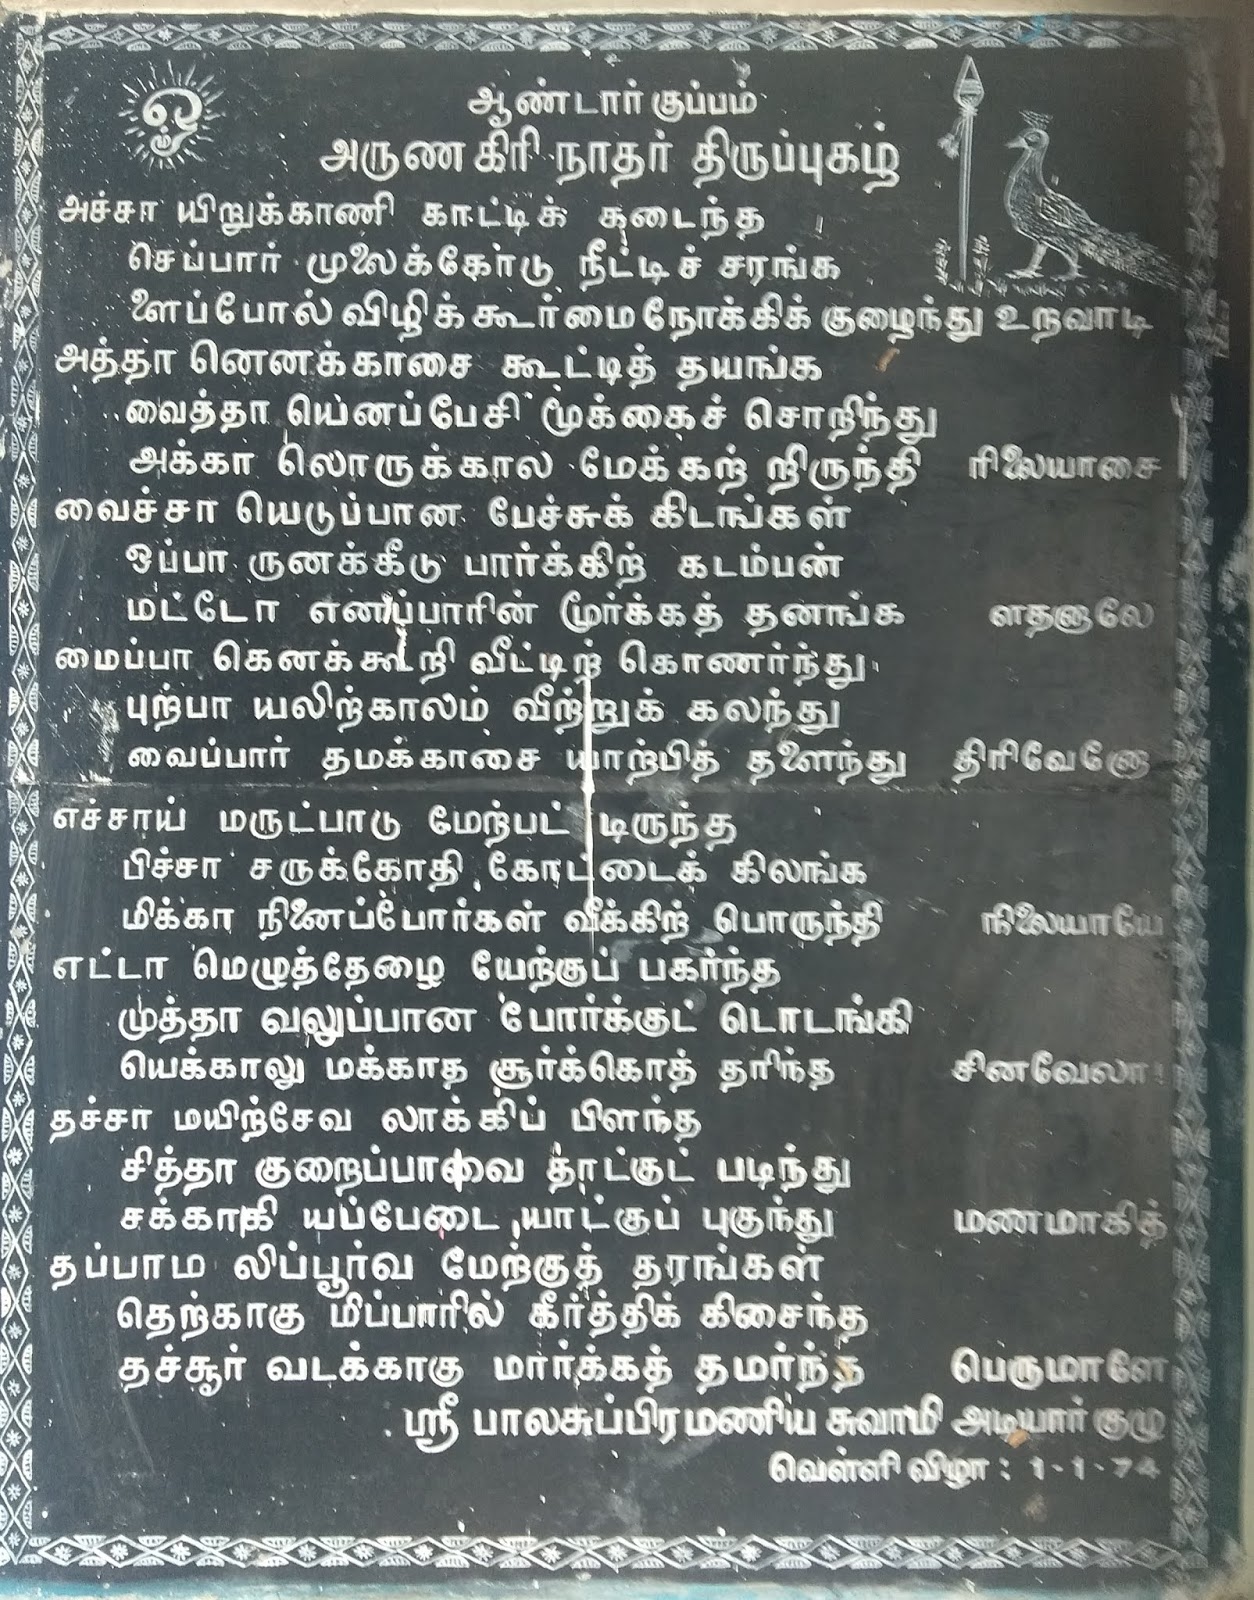 ஓம்
ஆண்டார் குப்பம்
அருணகிரி நாதர் திருப்புகழ்
அச்சா யிறுக்காணி காட்டிக் கடைந்த
செப்பார் முலைக்கோடு நீட்டிச் சரங்க
ளைப்போல் விழிக் கூர்மை நோக்கிக் குழைந்து உறவாடி
அத்தா னெனக்காசை கூட்டித் தயங்க
வைத்தா யெனப்பேசி மூக்கைச் சொறிந்து
அக்கா லொருக்கால மேக்கற் றிருந்தி ரிலையாசை
வைச்சா யெடுப்பான பேச்சுக் கிடங்கள்
ஒப்பா ருனக்கீடு பார்க்கிற் கடம்பன்
மட்டோ எனப்பாரின் மூர்க்கத் தனங்க ளதனாலே
மைப்பா கெனக்கூறி வீட்டிற் கொணர்ந்து
புற்பா யலிற்காலம் வீற்றுக் கலந்து
வைப்பார் தமக்காசை யாற்பித் தளைந்து திரிவேனோ
எச்சாய் மருட்பாடு மேற்பட் டிருந்த
பிச்சா சருக்கோதி கோட்டைக் கிலங்க
மிக்கா நினைப்போர்கள் வீக்கிற் பொருந்தி நிலையாயே
எட்டா மெழுத்தேழை யேற்குப் பகர்ந்த
முத்தா வலுப்பான போர்க்குட் டொடங்கி
யெக்காலு மக்காத சூர்க்கொத் தரிந்த சினவேலா
தச்சா மயிற்சேவ லாக்கிப் பிளந்த
சித்தா குறைப்பாவை தாட்குட் படிந்து
சக்காகி யப்பேடை யாட்குப் புகுந்து மணமாகித்
தப்பாம லிப்பூர்வ மேற்குத் தரங்கள்
தெற்காகு மிப்பாரில் கீர்த்திக் கிசைந்த
தச்சூர் வடக்காகு மார்க்கத் தமர்ந்த பெருமாளே
ஸ்ரீ பாலசுப்பிரமணிய சுவாமி அடியார் குழு
வெள்ளி விழா : 1-1-74